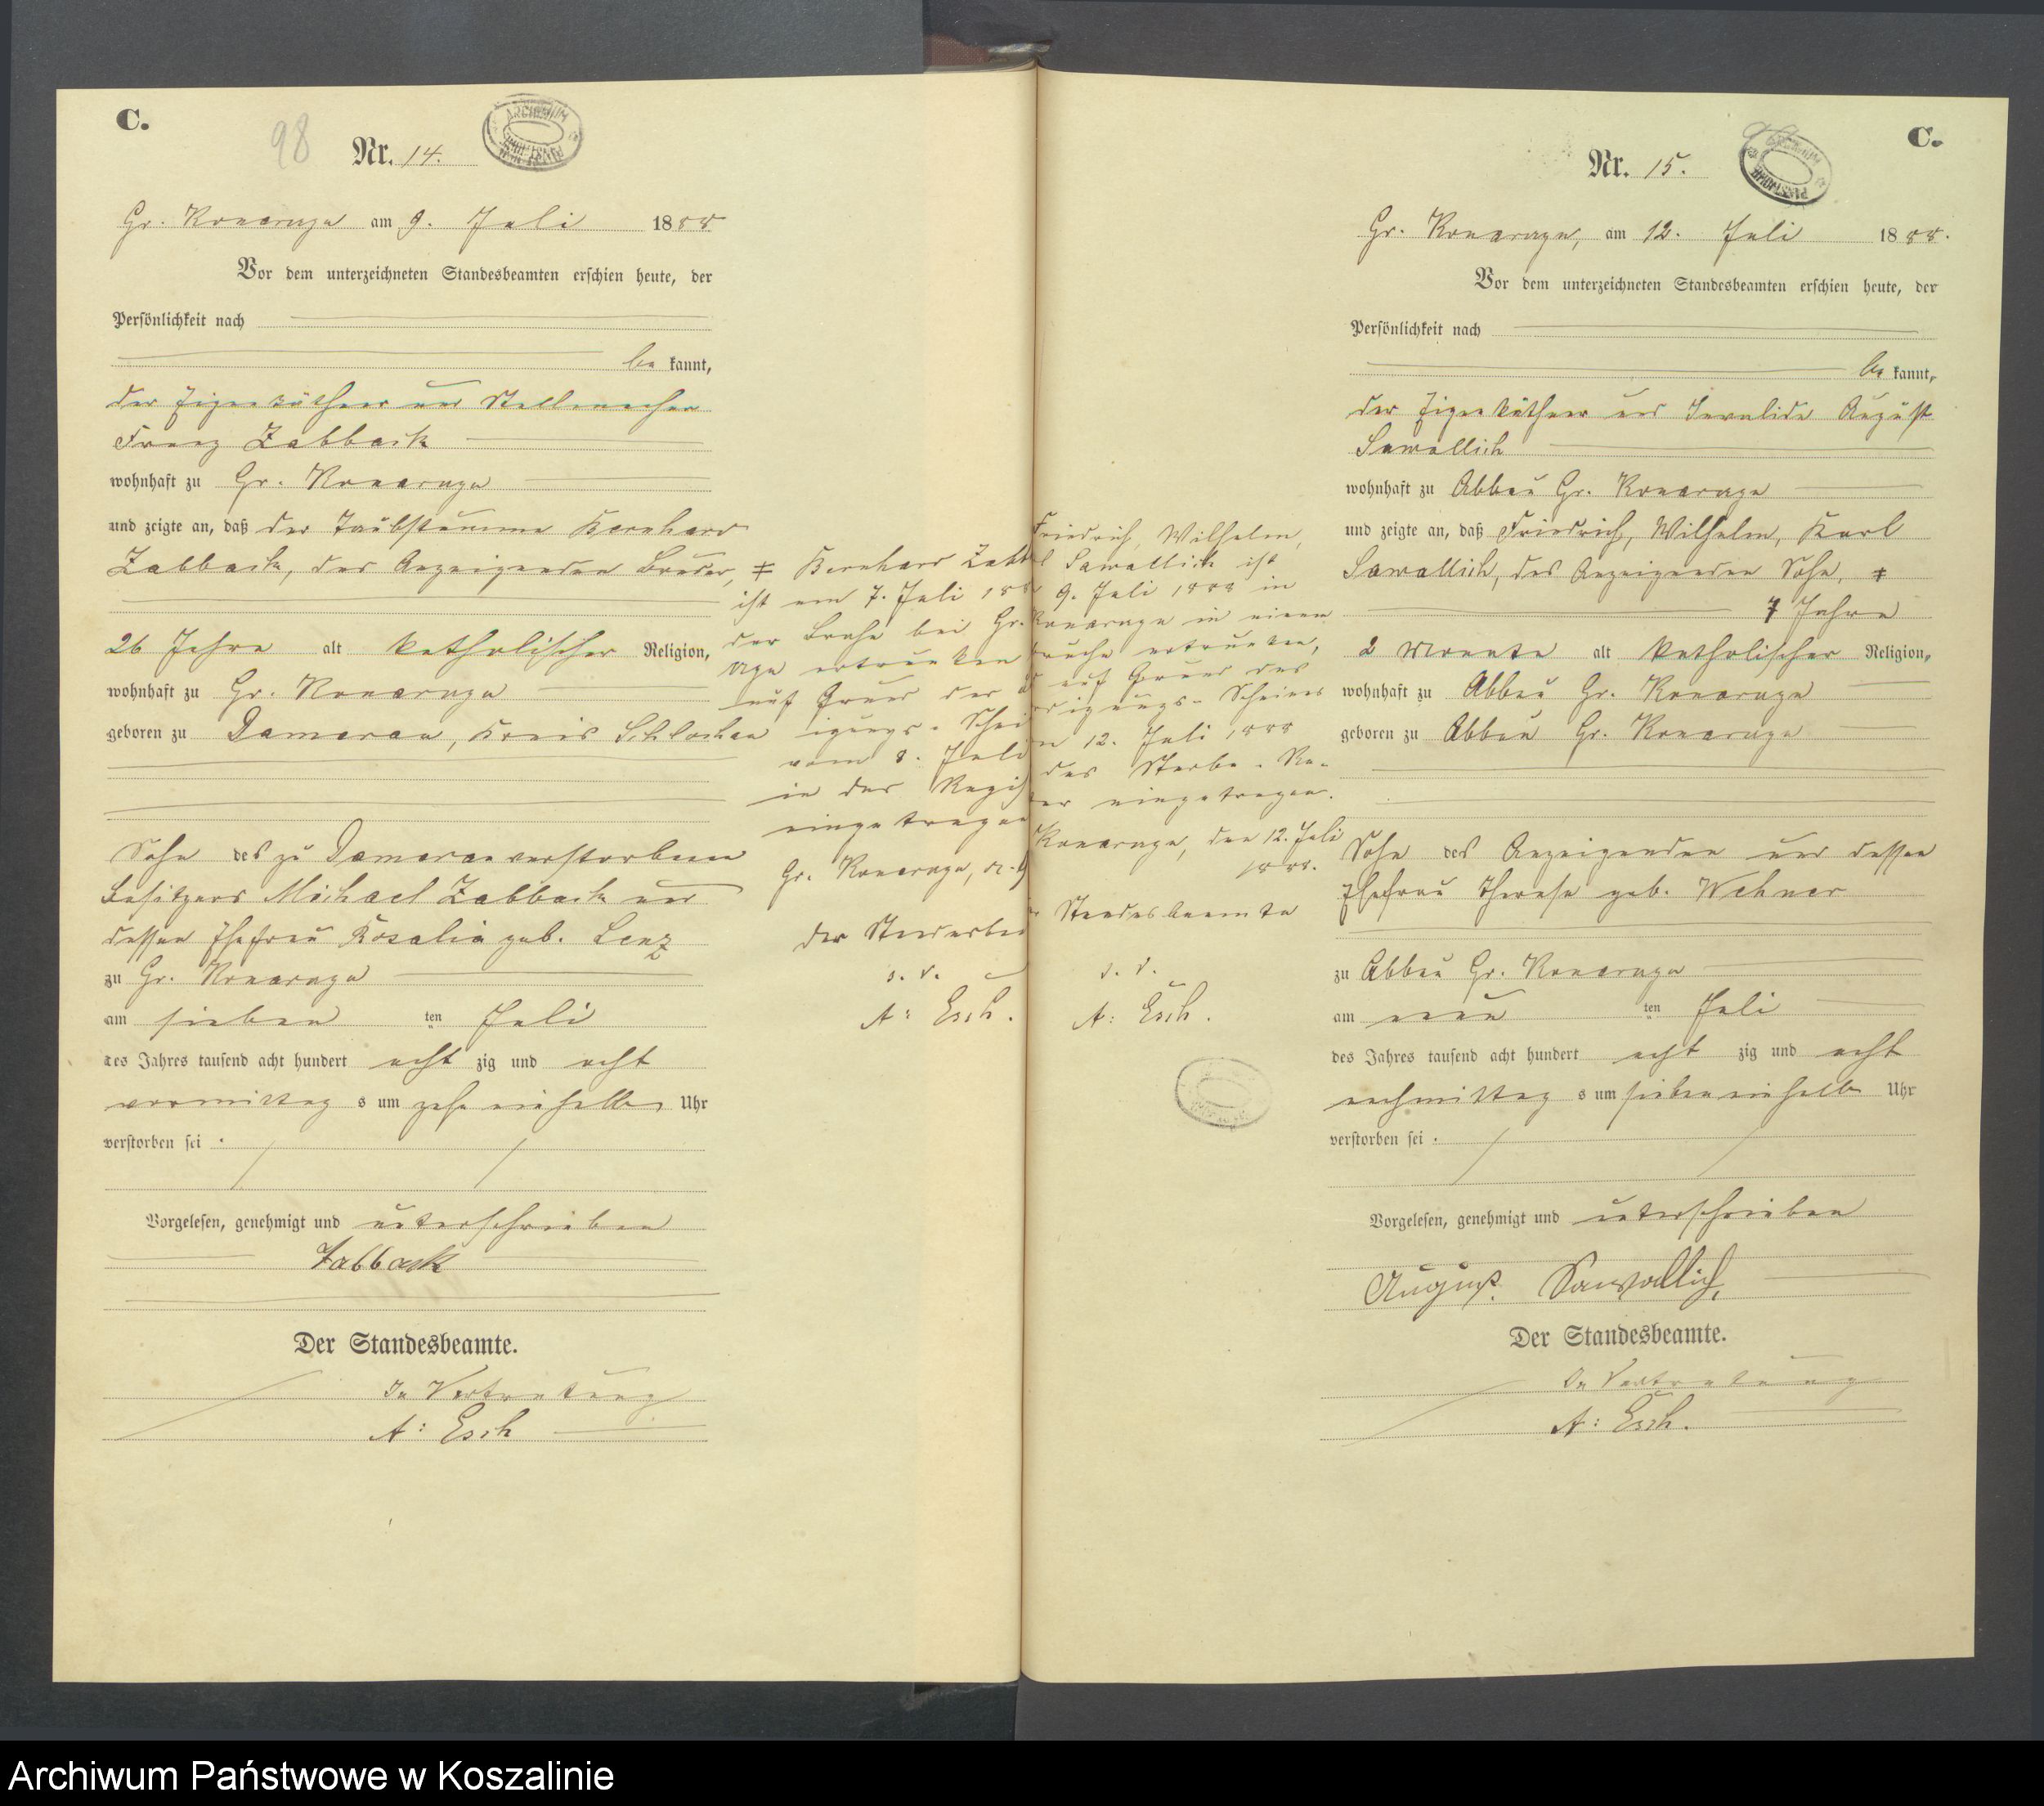 C.
98
Nr. 14.
Gr. Konarczyn am 9. Juli 1888
Vor dem unterzeichneten Standesbeamten erschien heute, der
Persönlichkeit nach
be kannt,
der Eigenkäthner und Stellmacher
Franz Zabback
wohnhaft zu Gr. Konarczyn
und zeigte an, daß der Taubstumme Bernhard
Zabback, des Anzeigenden Bruder, ≠
26 Jahre alt katholischer Religion,
wohnhaft zu Gr. Konarczyn
geboren zu Damerau, Kreis Schlochau
Sohn des zu Damerau verstorbenen
Besitzers Michael Zabback und
dessen Ehefrau Rosalia geb. Lenz
zu Gr. Konarczyn
am sieben ten Juli
des Jahres tausend acht hundert acht zig und acht
vormittag s um zehn einhalb Uhr
verstorben sei.
Vorgelesen, genehmigt und unterschrieben
Zabback
Der Standesbeamte.
In Vertretung
A: Esch
≠ Bernhard Zabb
ist am 7. Juli 188
der Brahe bei Gr.
ertrunken
auf Grund der
igungs-Schei
vom 8. Juli
in das Regis
eingetragen
Gr. Konarczyn,
der Standesbe
s. V.
A: Esch.
Friedrich, Wilhelm,
l Sawallich ist
9. Juli 1888 in
Konarczyn in einem
bruche ertrunken,
auf Grund des
digungs-Scheines
12. Juli 1888
das Sterbe-Re-
ter eingetragen.
Konarczyn, den 12. Juli
1888.
Standesbeamte
s. V.
A: Esch.
C.
Nr. 15.
Gr. Konarczyn, am 12. Juli 1888.
Vor dem unterzeichneten Standesbeamten erschien heute, der
Persönlichkeit nach
be kannt,
der Eigenkäthner und Invalide August
Sawallich
wohnhaft zu Abbau Gr. Konarczyn
und zeigte an, daß Friedrich, Wilhelm, Karl
Sawallich, des Anzeigenden Sohn, ≠
7 Jahre
2 Monate alt katholischer Religion,
wohnhaft zu Abbau Gr. Konarczyn
geboren zu Abbau Gr. Konarczyn
Sohn des Anzeigenden und dessen
Ehefrau Therese geb. Wehner
zu Abbau Gr. Konarczyn
am neun ten Juli
des Jahres tausend acht hundert acht zig und acht
nachmittag s um sieben einhalb Uhr
verstorben sei.
Vorgelesen, genehmigt und unterschrieben
August Sawallich,
Der Standesbeamte.
In Vertretung
A: Esch.
Archiwum Państwowe w Koszalinie